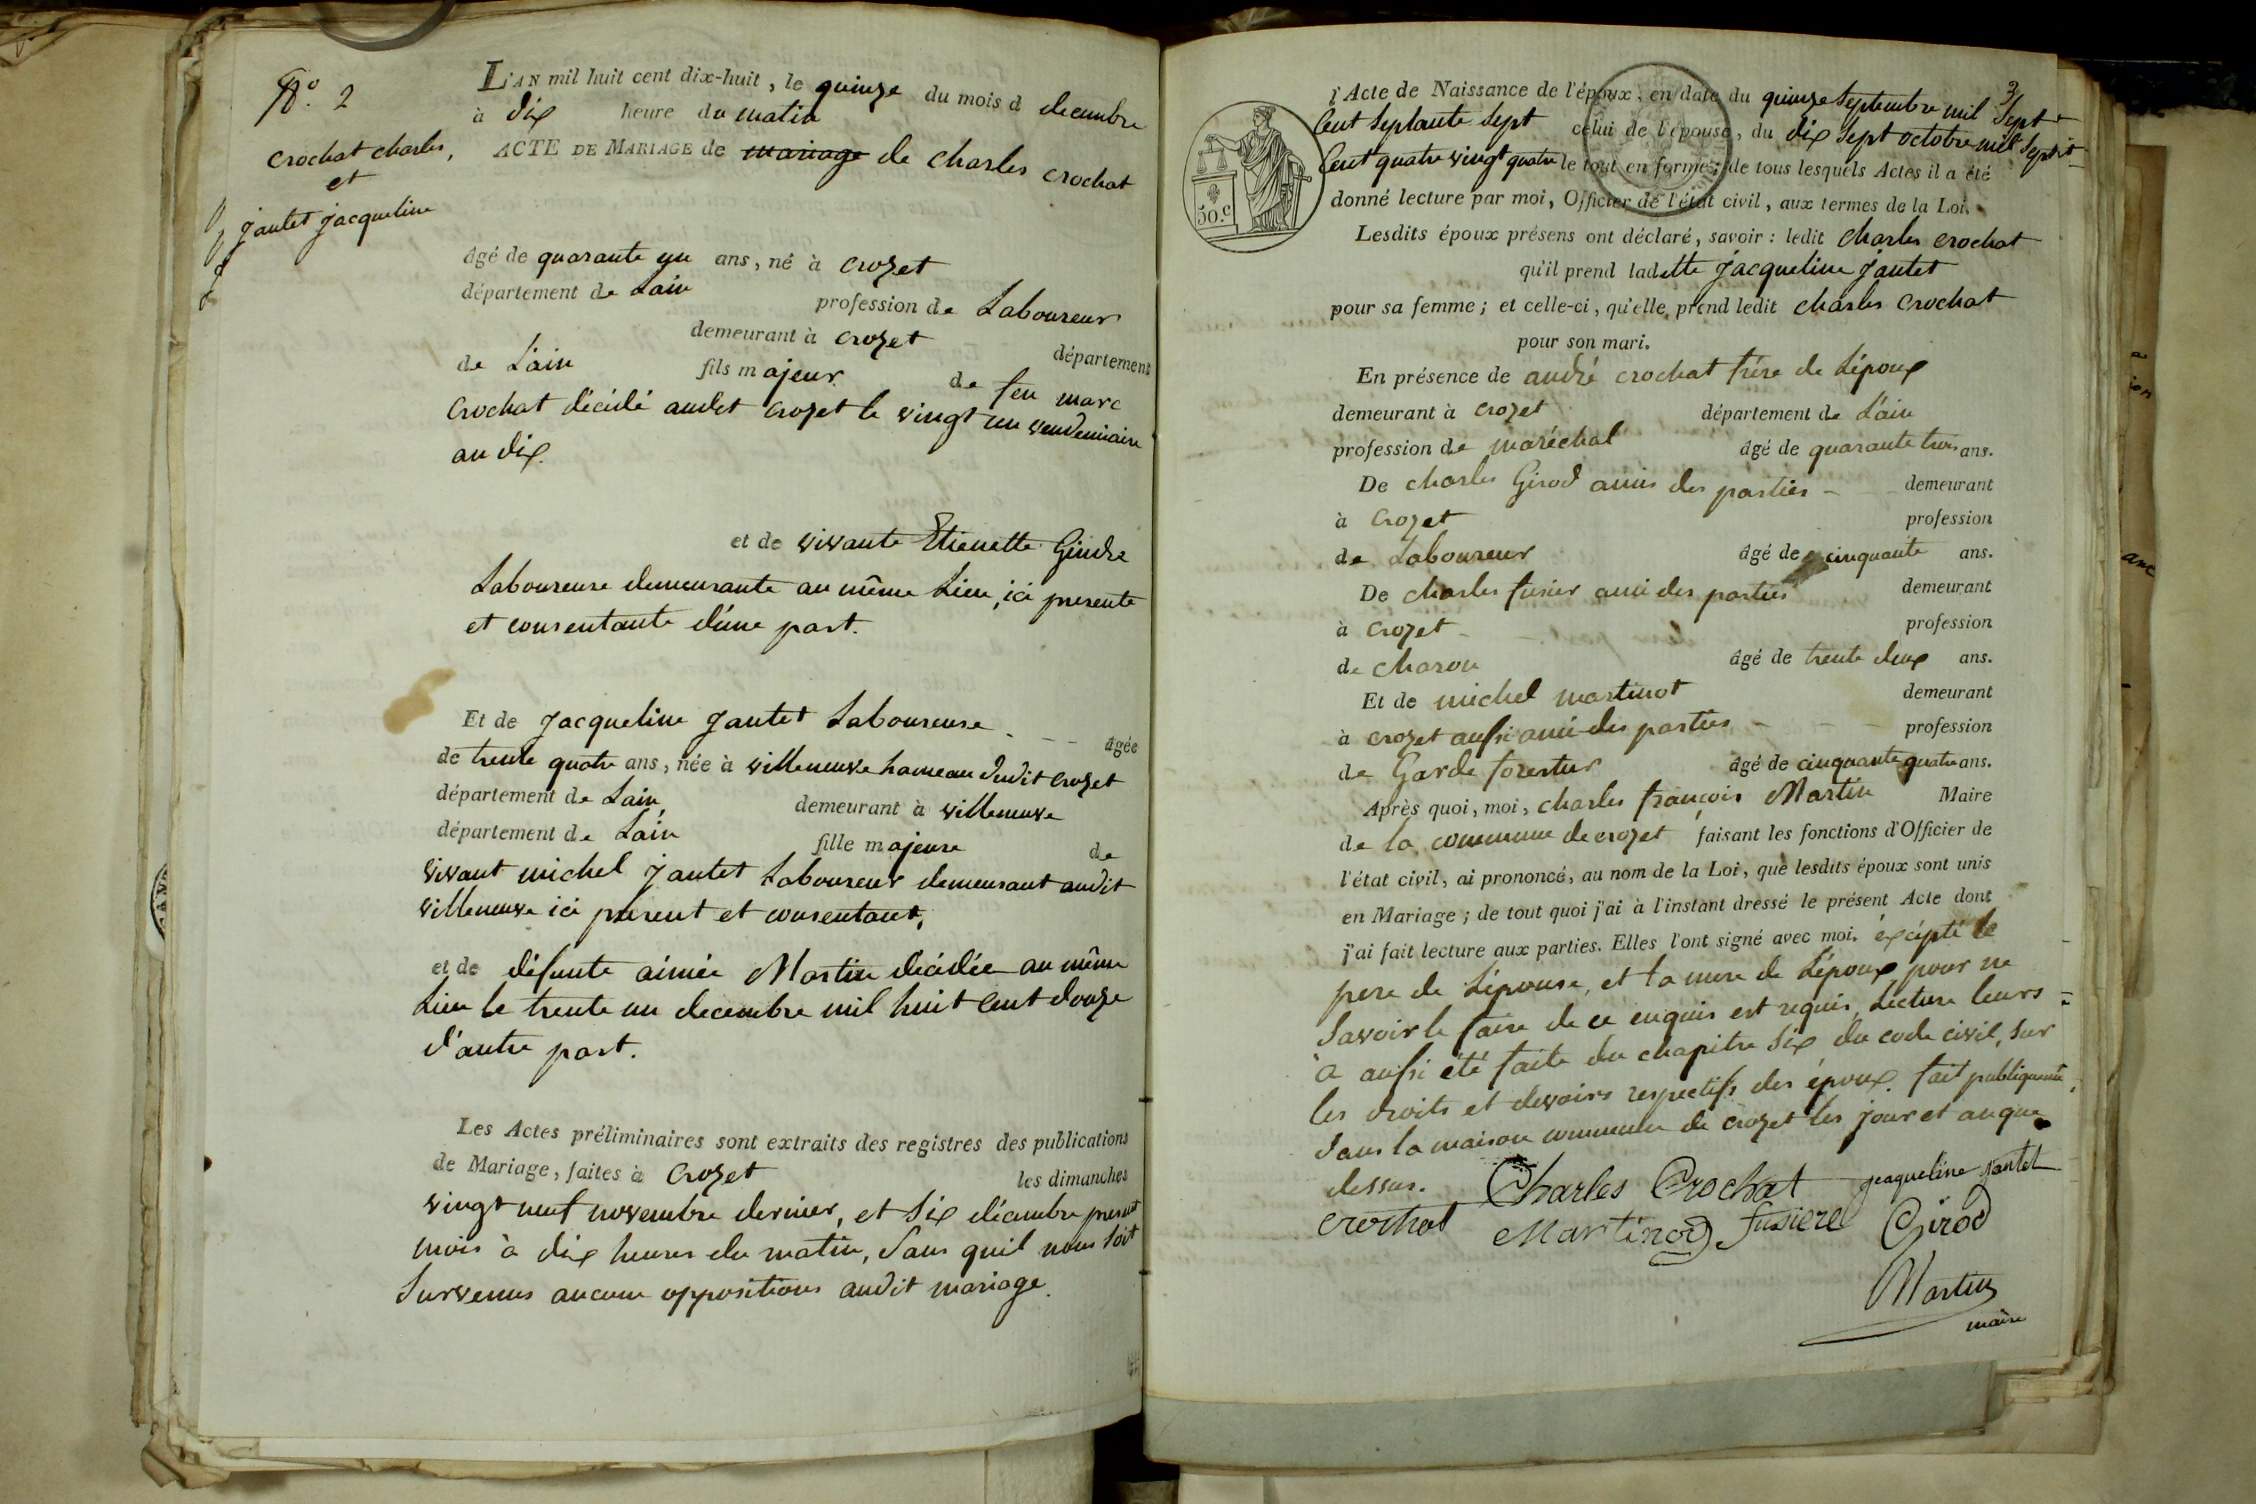 N.° 2
crochat charles,
et
jantet jacqueline
L'AN mil huit cent dix-huit, le quinze du mois d decembre
à dix heure du matin
ACTE DE MARIAGE de mariage de charles crochat
âgé de quarante un ans, né à crozet
département de Lain profession de Laboureur
demeurant à crozet département
de Lain fils majeur de feu marc
crochat décédé audit crozet le vingt un vendemiaire
an dix.
et de vivante Etienette Gindre
Laboureuse demeurante au même Lieu, ici presente
et consentante d'une part.
Et de jacqueline jantet Laboureuse - - - âgée
de trente quatre ans, née à villeneuve hameau dudit crozet
département de Lain, demeurant à villeneuve
département de Lain fille majeure de
vivant michel jantet Laboureur demeurant audit
villeneuve ici présent et consentant,
et de défunte aimée Martin décédée au même
Lieu le trente un decembre mil huit cent douze
d'autre part.
Les Actes préliminaires sont extraits des registres des publications
de Mariage, faites à Crozet les dimanches
vingt neuf novembre dernier, et six décembre present
mois à dix heures du matin, sans quil nous soit
survenus aucune oppositions audit mariage.
3
l'Acte de Naissance de l'époux, en date du quinze septembre mil sept
Cent septante sept celui de l'épouse, du dix sept octobre mil sept
Cent quatre vingt quatre le tout en forme; de tous lesquels Actes il a été
donné lecture par moi, Officier de l'état civil, aux termes de la Loi.
50.c
Lesdits époux présens ont déclaré, savoir : ledit charles crochat
qu'il prend ladette jacqueline jantet
pour sa femme; et celle-ci, qu'elle prend ledit charles crochat
pour son mari.
En présence de andré crochat frère de Lépoux
demeurant à crozet département de L'ain
profession de maréchal âgé de quarante trois ans.
De charles Girod amis des parties - demeurant
à Crozet profession
de Laboureur âgé de cinquante ans.
De charles fusier ami des parties demeurant
à crozet - profession
de charon âgé de trente deux ans.
Et de michel martinot demeurant
à crozet aussi ami des parties - - - profession
de Garde forestier âgé de cinquante quatre ans.
Après quoi, moi, charles françois Martin Maire
de la commune de crozet faisant les fonctions d'Officier de
l'état civil, ai prononcé, au nom de la Loi, que lesdits époux sont unis
en Mariage; de tout quoi j'ai à l'instant dressé le présent Acte dont
j'ai fait lecture aux parties. Elles l'ont signé avec moi. éxcépté le
pere de Lépouse, et la mere de Lépoux pour ne
savoir le faire de ce enquis est requis, Lecture leurs =
à aussi été faite du chapitre six du code civil, sur
les droits et devoirs respectifs des époux. fait publiquemte
dans la maison commune de crozet les jour et an que
dessus. Charles Crochat jeaqueline jantet
crochat Martinod fusiere Girod
Martin
maire